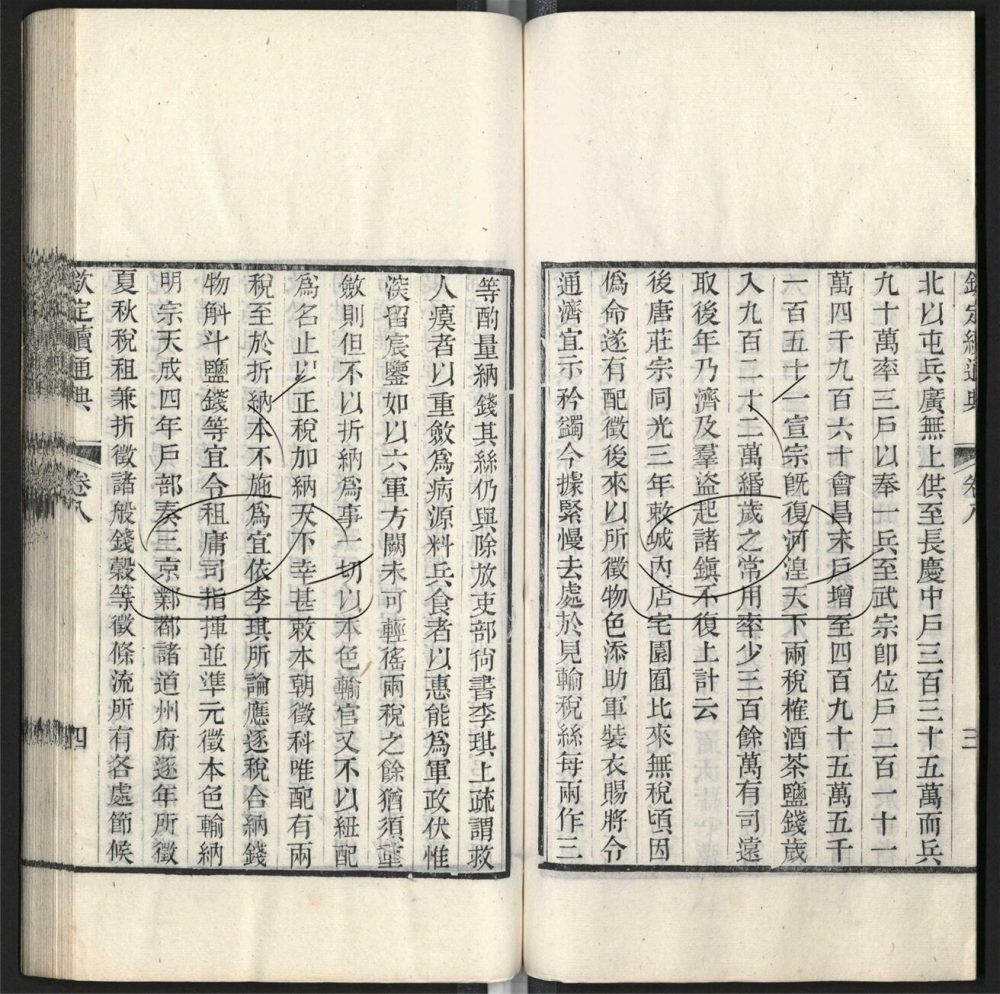 欽定續通典 卷八 三
北以屯兵廣無上供至長慶中戶三百三十五萬而兵
九十萬率三戶以奉一兵至武宗卽位戶二百一十一
萬四千九百六十會昌末戶增至四百九十五萬五千
一百五十一宣宗旣復河湟天下兩稅榷酒茶鹽錢歲
入九百二十二萬緡歲之常用率少三百餘萬有司遠
取後年乃濟及羣盜起諸鎭不復上計云
後唐莊宗同光三年敕城內店宅園囿比來無稅頃因
僞命遂有配徵後來以所徵物色添助軍裝衣賜將令
通濟宜示矜蠲今據緊慢去處於見輸稅絲每兩作三
等酌量納錢其絲仍與除放吏部尙書李琪上疏謂救
人瘼者以重斂爲病源料兵食者以惠能爲軍政伏惟
深留宸鑒如以六軍方闕未可輕徭兩稅之餘猶須重
斂則但不以折納爲事一切以本色輸官又不以紐配
爲名止以正稅加納天下幸甚敕本朝徵科唯配有兩
稅至於折納本不施爲宜依李琪所論應逐稅合納錢
物斛斗鹽錢等宜令租庸司指揮並準元徵本色輸納
明宗天成四年戶部奏三京鄴都諸道州府逐年所徵
夏秋稅租兼折徵諸般錢穀等徵條流所有各處節候
欽定續通典 卷八 四